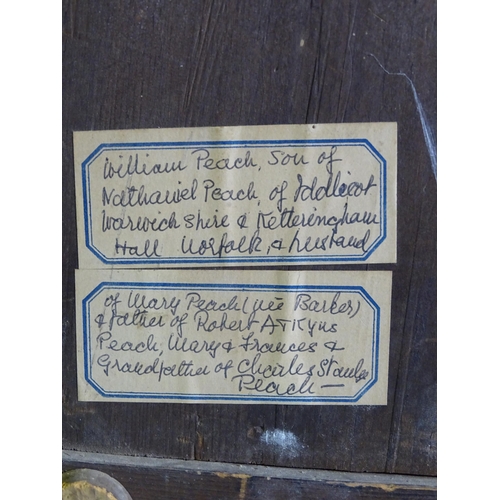 William Peach, Son of
Nathaniel Peach, of Iddlecot
Warwickshire & Ketteringham
Hall Norfolk, & husband
of Mary Peach (née Barker)
& father of Robert Atkyns
Peach, Mary & Frances &
Grandfather of Charles
Peach —